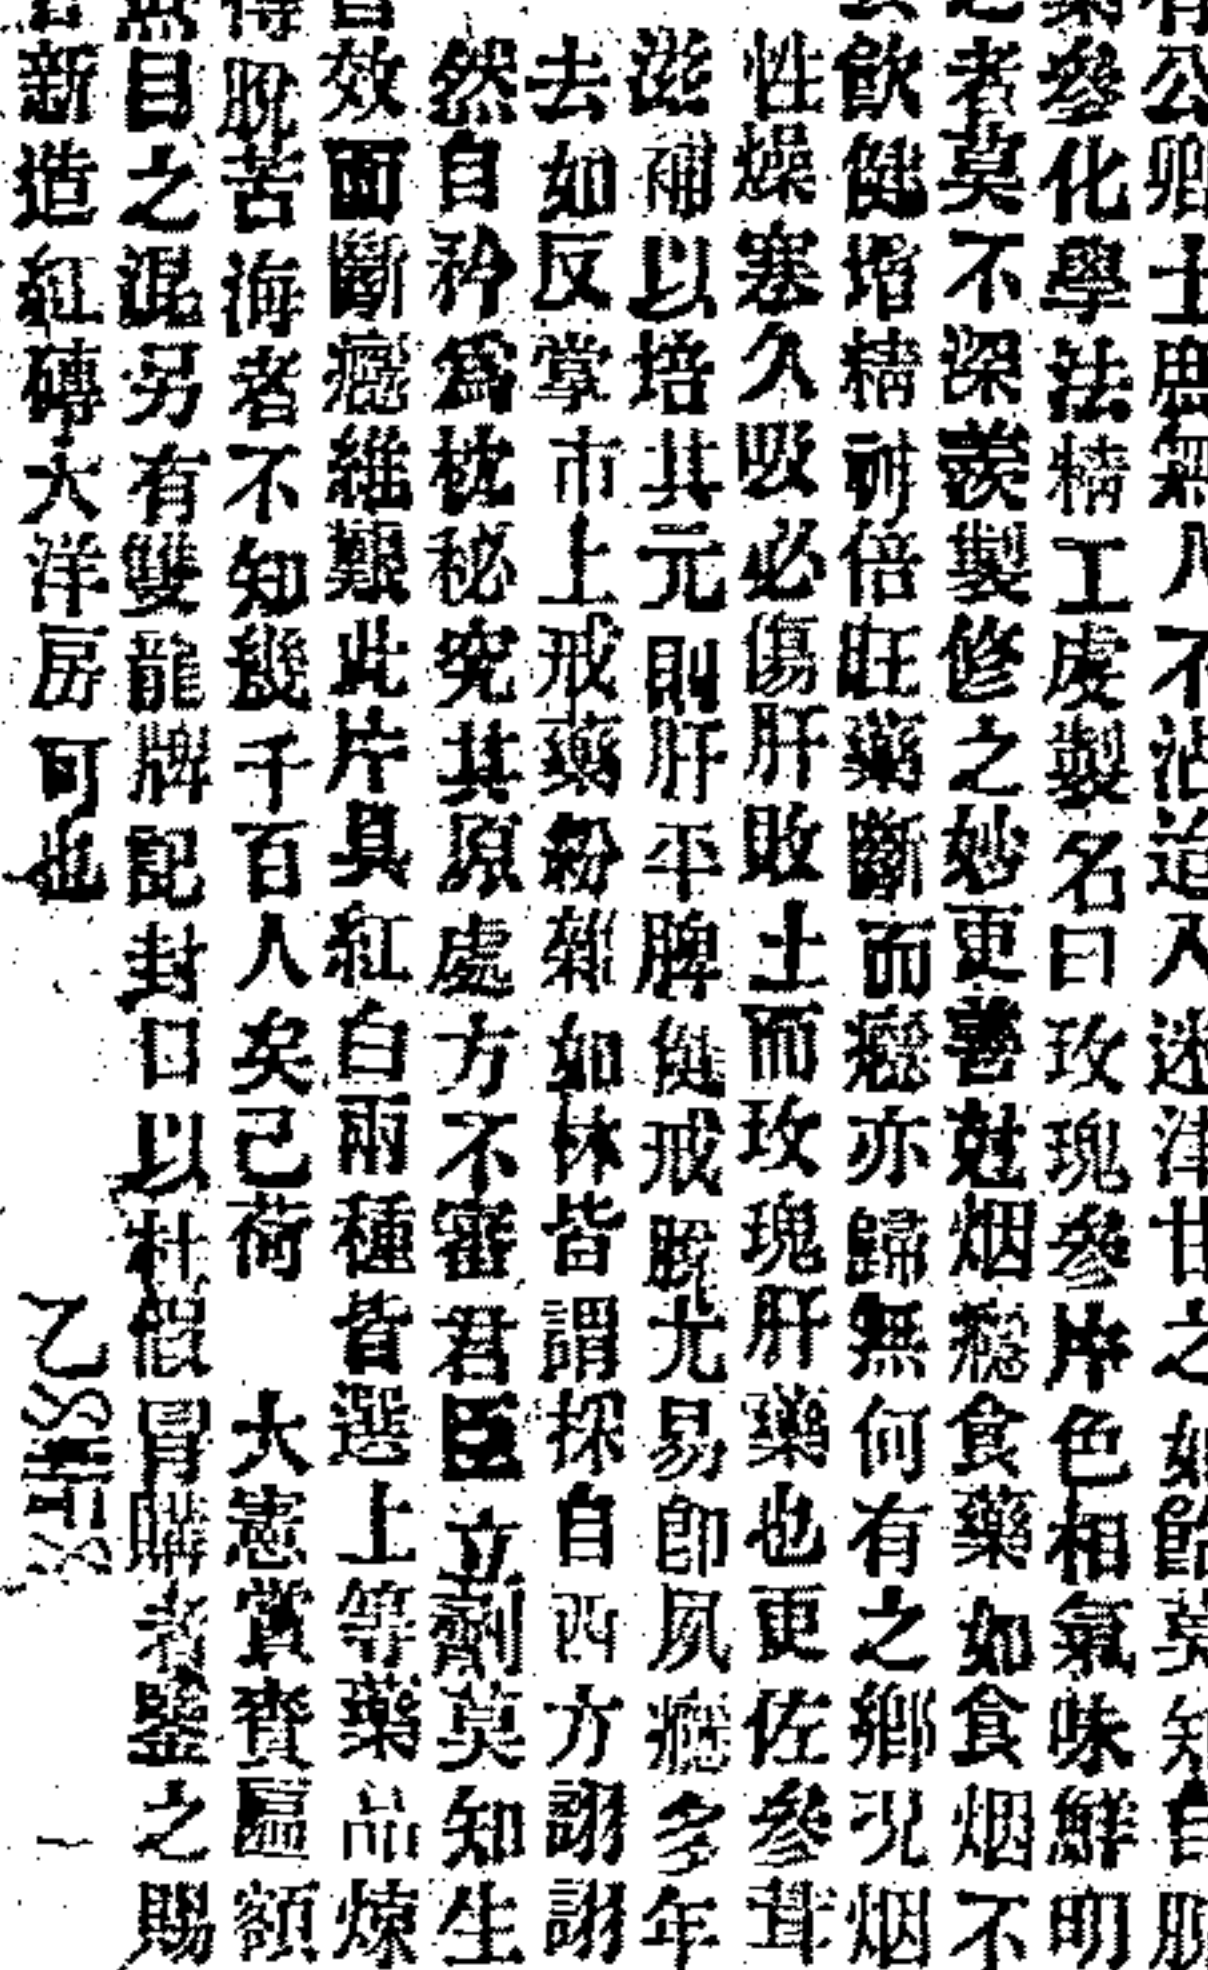 有公卿士庶無一八不沾迨入迷津甘之如飴莫知自脫
藥參化學法精工虔製名曰玫瑰參片色相氣味鮮明
之者莫不深羨製修之妙更善尅烟癮食藥如食烟不
飲健增精神倍旺藥斷而癮亦歸無何有之鄉況烟
性燥塞久吸必傷肝敗土而玫瑰肝藥也更佐參茸
滋補以培其元則肝平脾健戒脫尤易卽夙癮多年
去如反掌市上戒藥粉雜如林皆謂採自西方詡詡
然自矜爲枕秘究其原處方不審君臣立劑莫知生
效面斷癮維艱此片具紅白兩種皆選上等藥品煉
得脫苦海者不知幾千百人矣己荷 大憲賞賚匾額
魚目之混另有雙龍牌記封口以杜假冒購者鑒之賜
新造紅磚大洋房可也